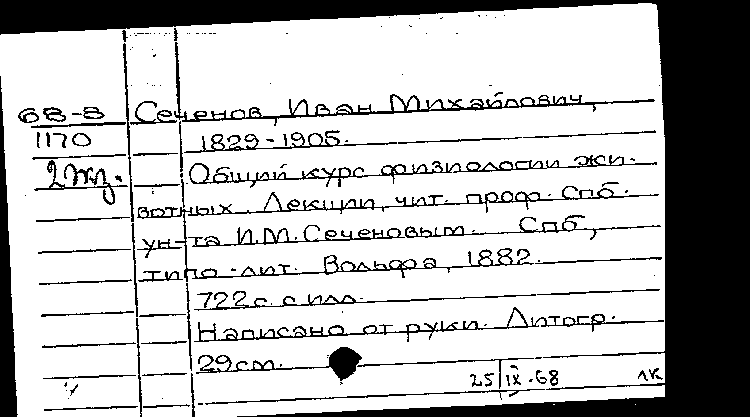 68-8 Сеченов, Иван Михайлович,
1170 1829-1905.
2 экз. Общий курс физиологии жи-
вотных. Лекции, чит. проф. Спб.
ун-та И.М.Сеченовым. Спб,
типо-лит. Вольфа, 1882.
722с. с илл.
Написано от руки. Литогр.
29см.
25/IX-68 лк